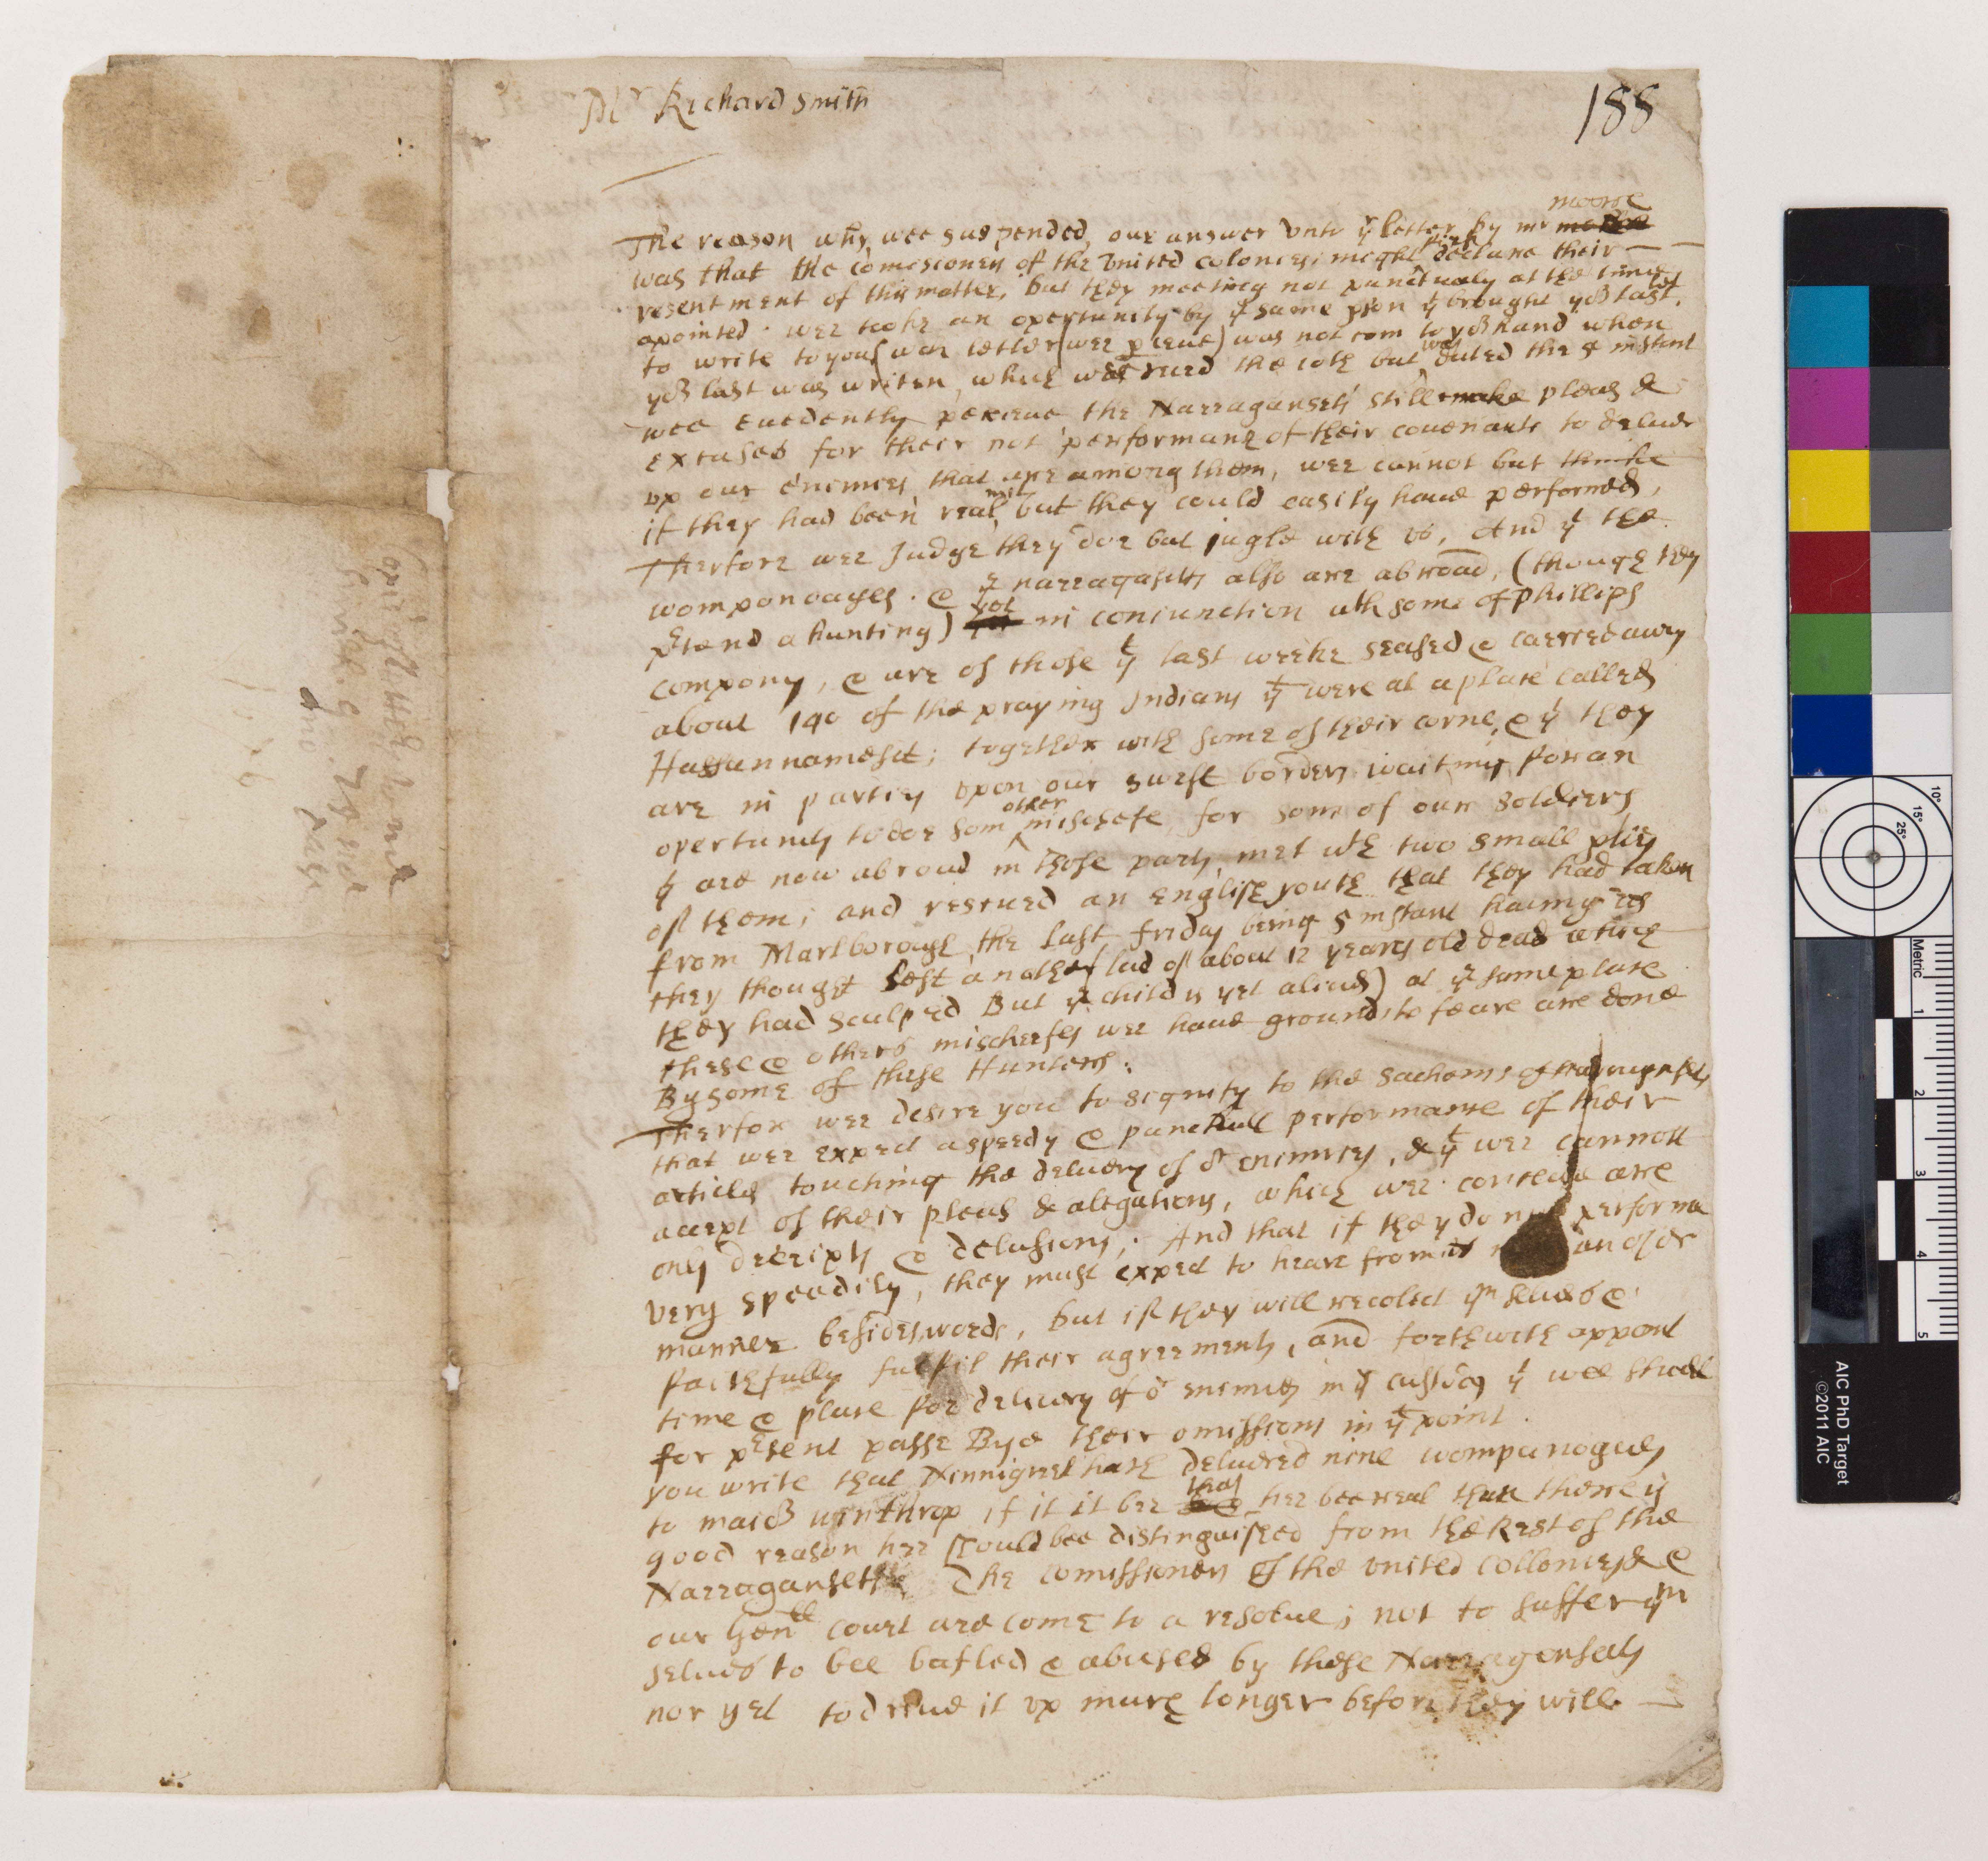 Mr Richard Smith
188
moore
The reason why wee suspended our answer vnto yr letter by mr
was that the Comisioners of the United Colonies might first declare their
resentment of this matter, but they meeting not punctualy at the time
apointed. wee tooke an opertunity by ye same pson yt brought yors last.
to write to you (wch letter (wee pceiue) was not com to yor hand when
yors last was writen, which wee rued the 10th but was dated the 8 instant
wee euedently perceiue the Narragansets still make pleas &
excuses for their not performanc of their couenants to deliuer
vp our enemies that are among them, wee cannot but thinke
if they had been real but they could easily haue performed,
Therfore wee Judge they doe but jugle with vs, And yt the
womponoages. & ye narragasitts also are abroad, (though they
prtend a hunting) yet in coniunction wth some of phillips
company, & are of those yt last weeke seased & carried away
about 140 of the praying Indians yt were at a place called
Hassannamesit; together with some of their corne, & yt they
are in parties vpon our west borders waiting for an
opertunity to doe som other mischefe, for some of our soldiers
yt are now abroad in those parts, met wth two small pties
of them; and rescued an english youth that they had taken
from Marlborough the last friday being 5 instant hauing as
they thought left another lad of about 12 years old dead which
they had sculped But ye child is yet aliue) at ye same place
these & others mischeefes wee haue grounds to feare are done
By some of these Hunters:
Therfor wee desire you to signify to the sachems of
that wee expect a speedy & punctuall performance of their
articles touching the deliuery of or enimies, & yt wee cannott
accept of their pleas & alegations, which wee conceiue are
only deceipts & delusions; And that if they do not performe
very speedily, they must expect to heare from us in an other
manner besides words, but if they will recolect ym selues &
faithfully fulfil their agreements, and forthwith appoint
time & place for deliuery of or enimies in yr custody yt wee shall
for prsent passe Bye their omissions in yt point.
you write that Ninnigret hath deliuered nine wompanogues
to maior winthrop if it it bee thus hee bee real than there is
good reason hee should bee distinguished from the Rest of the
Narragansetts The Comissioners of the vnited Collonies &
our Genll Court are come to a resolue; not to suffer ym
selues to bee bafled & abused by these Narragansets
nor yet to driue it vp much longer before they will